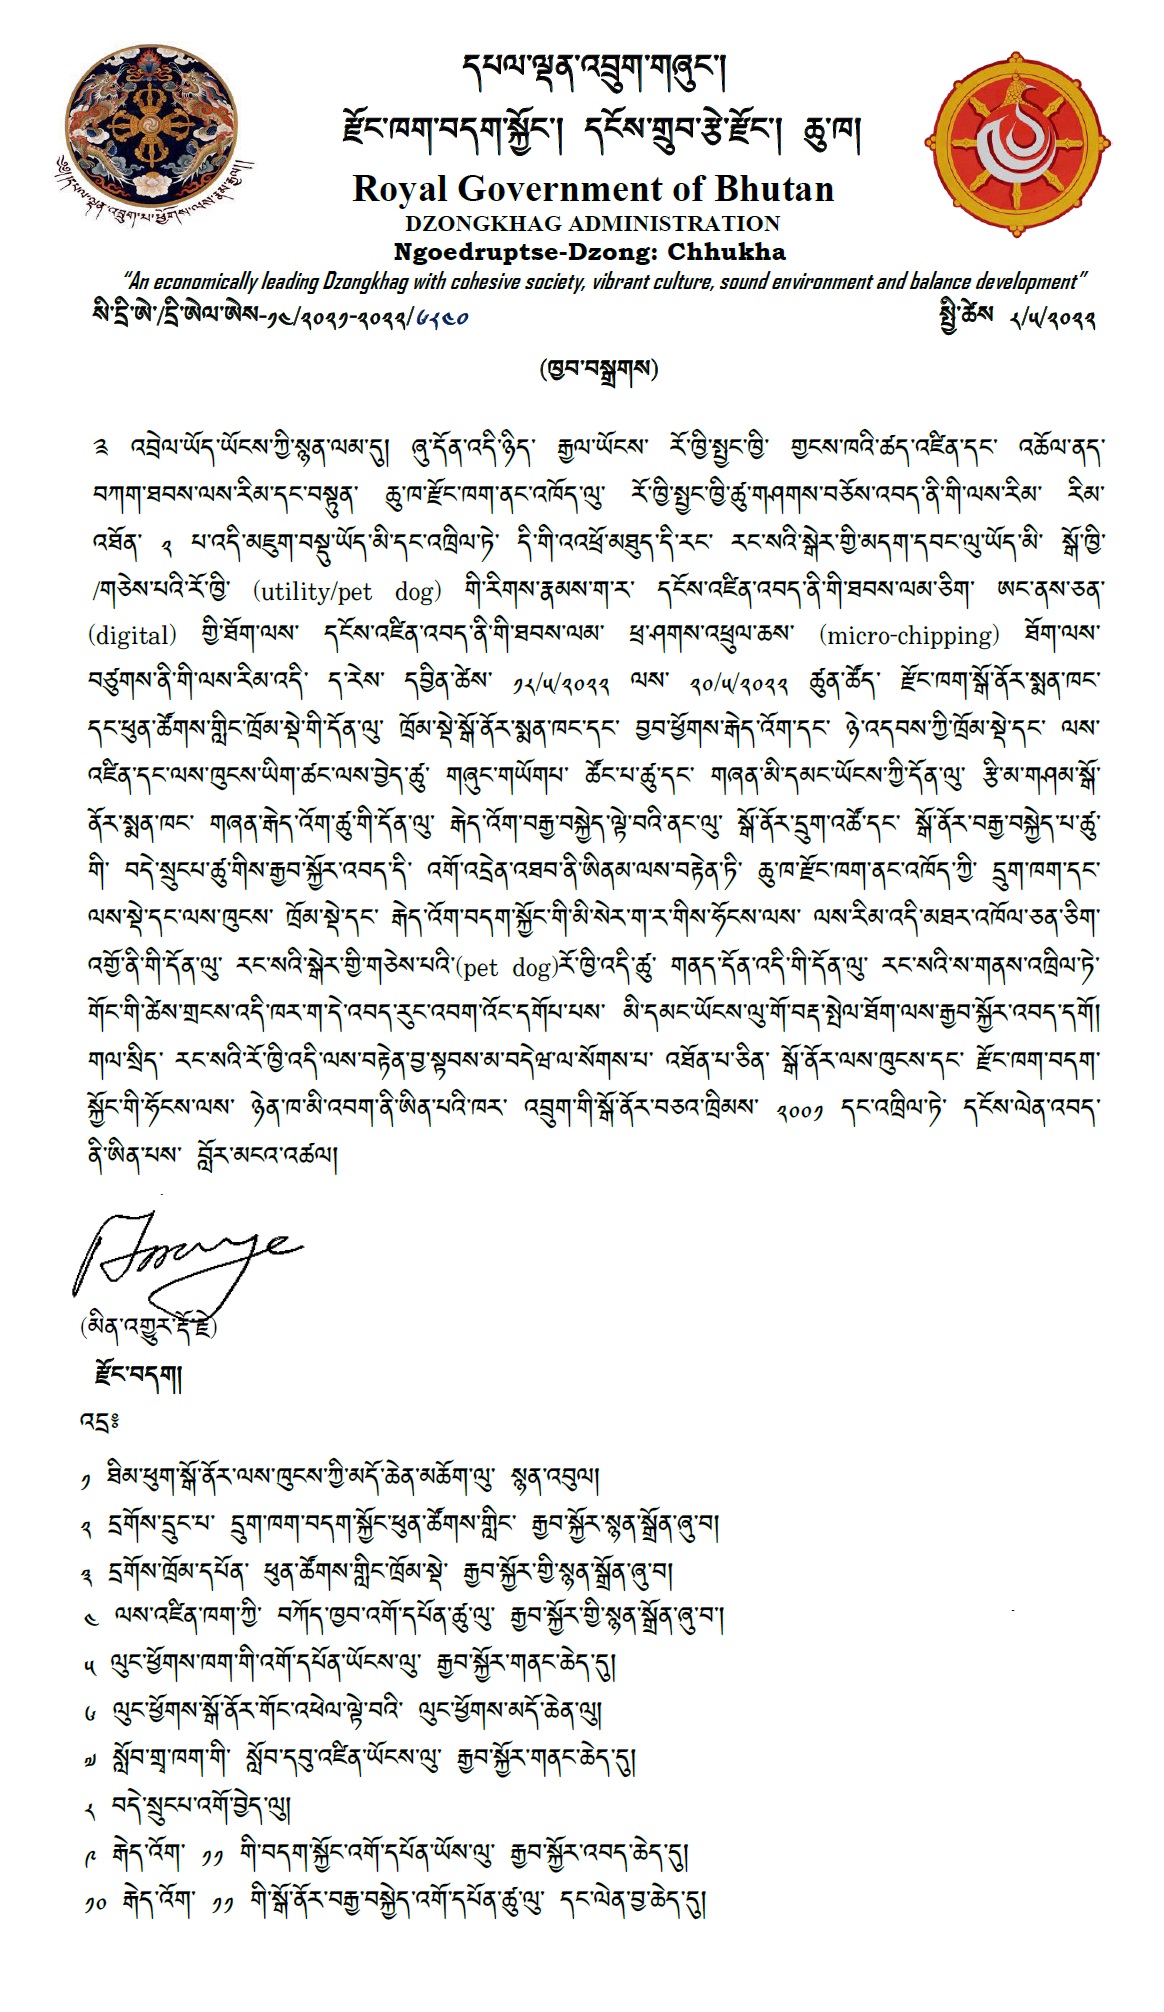 དཔལ་ལྡན་འབྲུག་གཞུང་།
རྫོང་ཁག་བདག་སྐྱོང་།  དངོས་གྲུབ་རྩེ་རྫོང་།  ཆུ་ཁ།
Royal Government of Bhutan
DZONGKHAG ADMINISTRATION
Ngoedruptse-Dzong: Chhukha
“An economically leading Dzongkhag with cohesive society, vibrant culture, sound environment and balance development”
༄༅།།དཔལ་ལྡན་འབྲུག་པ་ཕྱོགས་ལས་རྣམ་རྒྱལ།།
སི་དྲི་ཨེ་/དྲི་ཨེལ་ཨེས-༡༤/༢༠༢༡-༢༠༢༢/༦༨༤༠  སྤྱི་ཚེས  ༨/༥/༢༠༢༢
(ཁྱབ་བསྒྲགས)
༉  འབྲེལ་ཡོད་ཡོངས་ཀྱི་སྙན་ལམ་དུ།  ཞུ་དོན་འདི་ཉིད་  རྒྱལ་ཡོངས་  རོ་ཁྱི་སྤྱང་ཁྱི་  གྱངས་ཁའི་ཚད་འཛིན་དང་  འཆོལ་ནད་
བཀག་ཐབས་ལས་རིམ་དང་བསྟུན་  ཆུ་ཁ་རྫོང་ཁག་ནང་འཁོད་ལུ་  རོ་ཁྱི་སྤྱང་ཁྱི་ཚུ་གཤགས་བཅོས་འབད་ནི་གི་ལས་རིམ་  རིམ་
འཐོན་  ༢  པ་འདི་མཇུག་བསྡུ་ཡོད་མི་དང་འཁྲིལ་ཏེ་  དི་གི་འའཕྲོ་མཐུད་དི་རང་  རང་སའི་སྒེར་གྱི་མདག་དབང་ལུ་ཡོད་མི་  སྒོ་ཁྱི་
/གཅེས་པའི་རོ་ཁྱི་  (utility/pet dog)  གི་རིགས་རྣམས་ག་ར་  དངོས་འཛིན་འབད་ནི་གི་ཐབས་ལམ་ཅིག་  ཨང་ནས་ཅན་
(digital)  གྱི་ཐོག་ལས་  དངོས་འཛིན་འབད་ནི་གི་ཐབས་ལམ་  ཕྲ་ཤགས་འཕྲུལ་ཆས་  (micro-chipping)  ཐོག་ལས་
བཙུགས་ནི་གི་ལས་རིམ་འདི་  ད་རེས་  དབྱིན་ཚེས་  ༡༨/༥/༢༠༢༢  ལས་  ༢༠/༥/༢༠༢༢  ཚུན་ཚོད་  རྫོང་ཁག་སྒོ་ནོར་སྨན་ཁང་
དང་ཕུན་ཚོགས་གླིང་ཁྲོམ་སྡེ་གི་དོན་ལུ་  ཁྲོམ་སྡེ་སྒོ་ནོར་སྨན་ཁང་དང་  བྱབ་ཕྱོགས་རྒེད་འོག་དང་  ཉེ་འདབས་ཀྱི་ཁྲོམ་སྡེ་དང་  ལས་
འཛིན་དང་ལས་ཁུངས་ཡིག་ཚང་ལས་བྱེད་ཚུ་  གཞུང་གཡོགཔ་  ཚོང་པ་ཚུ་དང་  གཞན་མི་དམང་ཡོངས་ཀྱི་དོན་ལུ་  རྩི་མ་གཤམ་སྒོ་
ནོར་སྨན་ཁང་  གཞན་རྒེད་འོག་ཚུ་གི་དོན་ལུ་  རྒེད་འོག་བརྒྱ་བསྐྱེད་ལྟེ་བའི་ནང་ལུ་  སྒོ་ནོར་དྲུག་འཚོ་དང་  སྒོ་ནོར་བརྒྱ་བསྐྱེད་པ་ཚུ་
གི་  བདེ་སྲུངཔ་ཚུ་གིས་རྒྱབ་སྐྱོར་འབད་དི་  འགོ་འདྲེན་འཐབ་ནི་ཨིནམ་ལས་བརྟེན་ཏི་  ཆུ་ཁ་རྫོང་ཁག་ནང་འཁོད་ཀྱི་  དྲུག་ཁག་དང་
ལས་སྡེ་དང་ལས་ཁུངས་  ཁྲོམ་སྡེ་དང་  རྒེད་འོག་བདག་སྐྱོང་གི་མི་སེར་ག་ར་གིས་ཧོངས་ལས་  ལས་རིམ་འདི་མཐར་འཁོལ་ཅན་ཅིག་
འགྱོ་ནི་གི་དོན་ལུ་  རང་སའི་སྒེར་གྱི་གཅེས་པའི་(pet dog)རོ་ཁྱི་འདི་ཚུ་  གནད་དོན་འདི་གི་དོན་ལུ་  རང་སའི་ས་གནས་འཁྲིལ་ཏེ་
གོང་གི་ཚེས་གྲངས་འདི་ཁར་ག་དེ་འབད་རུང་འབག་འོང་དགོཔ་པས་  མི་དམང་ཡོངས་ལུ་གོ་བརྡ་སྤེལ་ཐོག་ལས་རྒྱབ་སྐྱོར་འབད་དགོ།
གལ་སྲིད་  རང་སའི་རོ་ཁྱི་འདི་ལས་བརྟེན་བྱ་སྟབས་མ་བདེཝ་ལ་སོགས་པ་  འཐོན་པ་ཅིན་  སྒོ་ནོར་ལས་ཁུངས་དང་  རྫོང་ཁག་བདག་
སྐྱོང་གི་ཧོངས་ལས་  ཉེན་ཁ་མི་འབག་ནི་ཨིན་པའི་ཁར་  འབྲུག་གི་སྒོ་ནོར་བཅའ་ཁྲིམས་  ༢༠༠༡  དང་འཁྲིལ་ཏེ་  དངོས་ལེན་འབད་
ནི་ཨིན་པས་  བློར་མངའ་འཚལ།
(མིན་འགྱུར་རྡོ་རྗེ)
རྫོང་བདག།
འདྲཿ
༡  ཐིམ་ཕུག་སྒོ་ནོར་ལས་ཁུངས་ཀྱི་མདོ་ཆེན་མཆོག་ལུ་  སྙན་འབུལ།
༢  དྲགོས་དྲུང་པ་  དྲུག་ཁག་བདག་སྐྱོང་ཕུན་ཚོགས་གླིང་  རྒྱབ་སྐྱོར་སྙན་སྒྲོན་ཞུ་བ།
༣  དྲགོས་ཁྲོམ་དཔོན་  ཕུན་ཚོགས་གླིང་ཁྲོམ་སྡེ་  རྒྱབ་སྐྱོར་གྱི་སྙན་སྒྲོན་ཞུ་བ།
༤  ལས་འཛིན་ཁག་ཀྱི་  བཀོད་ཁྱབ་འགོ་དཔོན་ཚུ་ལུ་  རྒྱབ་སྐྱོར་གྱི་སྙན་སྒྲོན་ཞུ་བ་།
༥  ལུང་ཕྱོགས་ཁག་གི་འགོ་དཔོན་ཡོངས་ལུ་  རྒྱབ་སྐྱོར་གནང་ཆེད་དུ།
༦  ལུང་ཕྱོགས་སྒོ་ནོར་གོང་འཕེལ་ལྟེ་བའི་  ལུང་ཕྱོགས་མདོ་ཆེན་ལུ།
༧  སློབ་གྲྭ་ཁག་གི་  སློབ་དབུ་འཛིན་ཡོངས་ལུ་  རྒྱབ་སྐྱོར་གནང་ཆེད་དུ།
༨  བདེ་སྲུངཔ་འགོ་བྱེད་ལུ།
༩  རྒེད་འོག་  ༡༡  གི་བདག་སྐྱོང་འགོ་དཔོན་ཡོས་ལུ་  རྒྱབ་སྐྱོར་འབད་ཆེད་དུ།
༡༠  རྒེད་འོག་  ༡༡  གི་སྒོ་ནོར་བརྒྱ་བསྐྱེད་འགོ་དཔོན་ཚུ་ལུ་  དང་ལེན་བྱ་ཆེད་དུ།